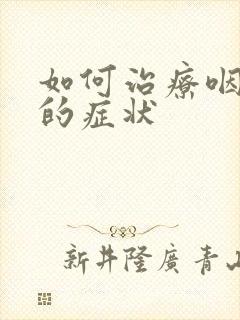 如何治療咽
的症状
新井隆廣青山